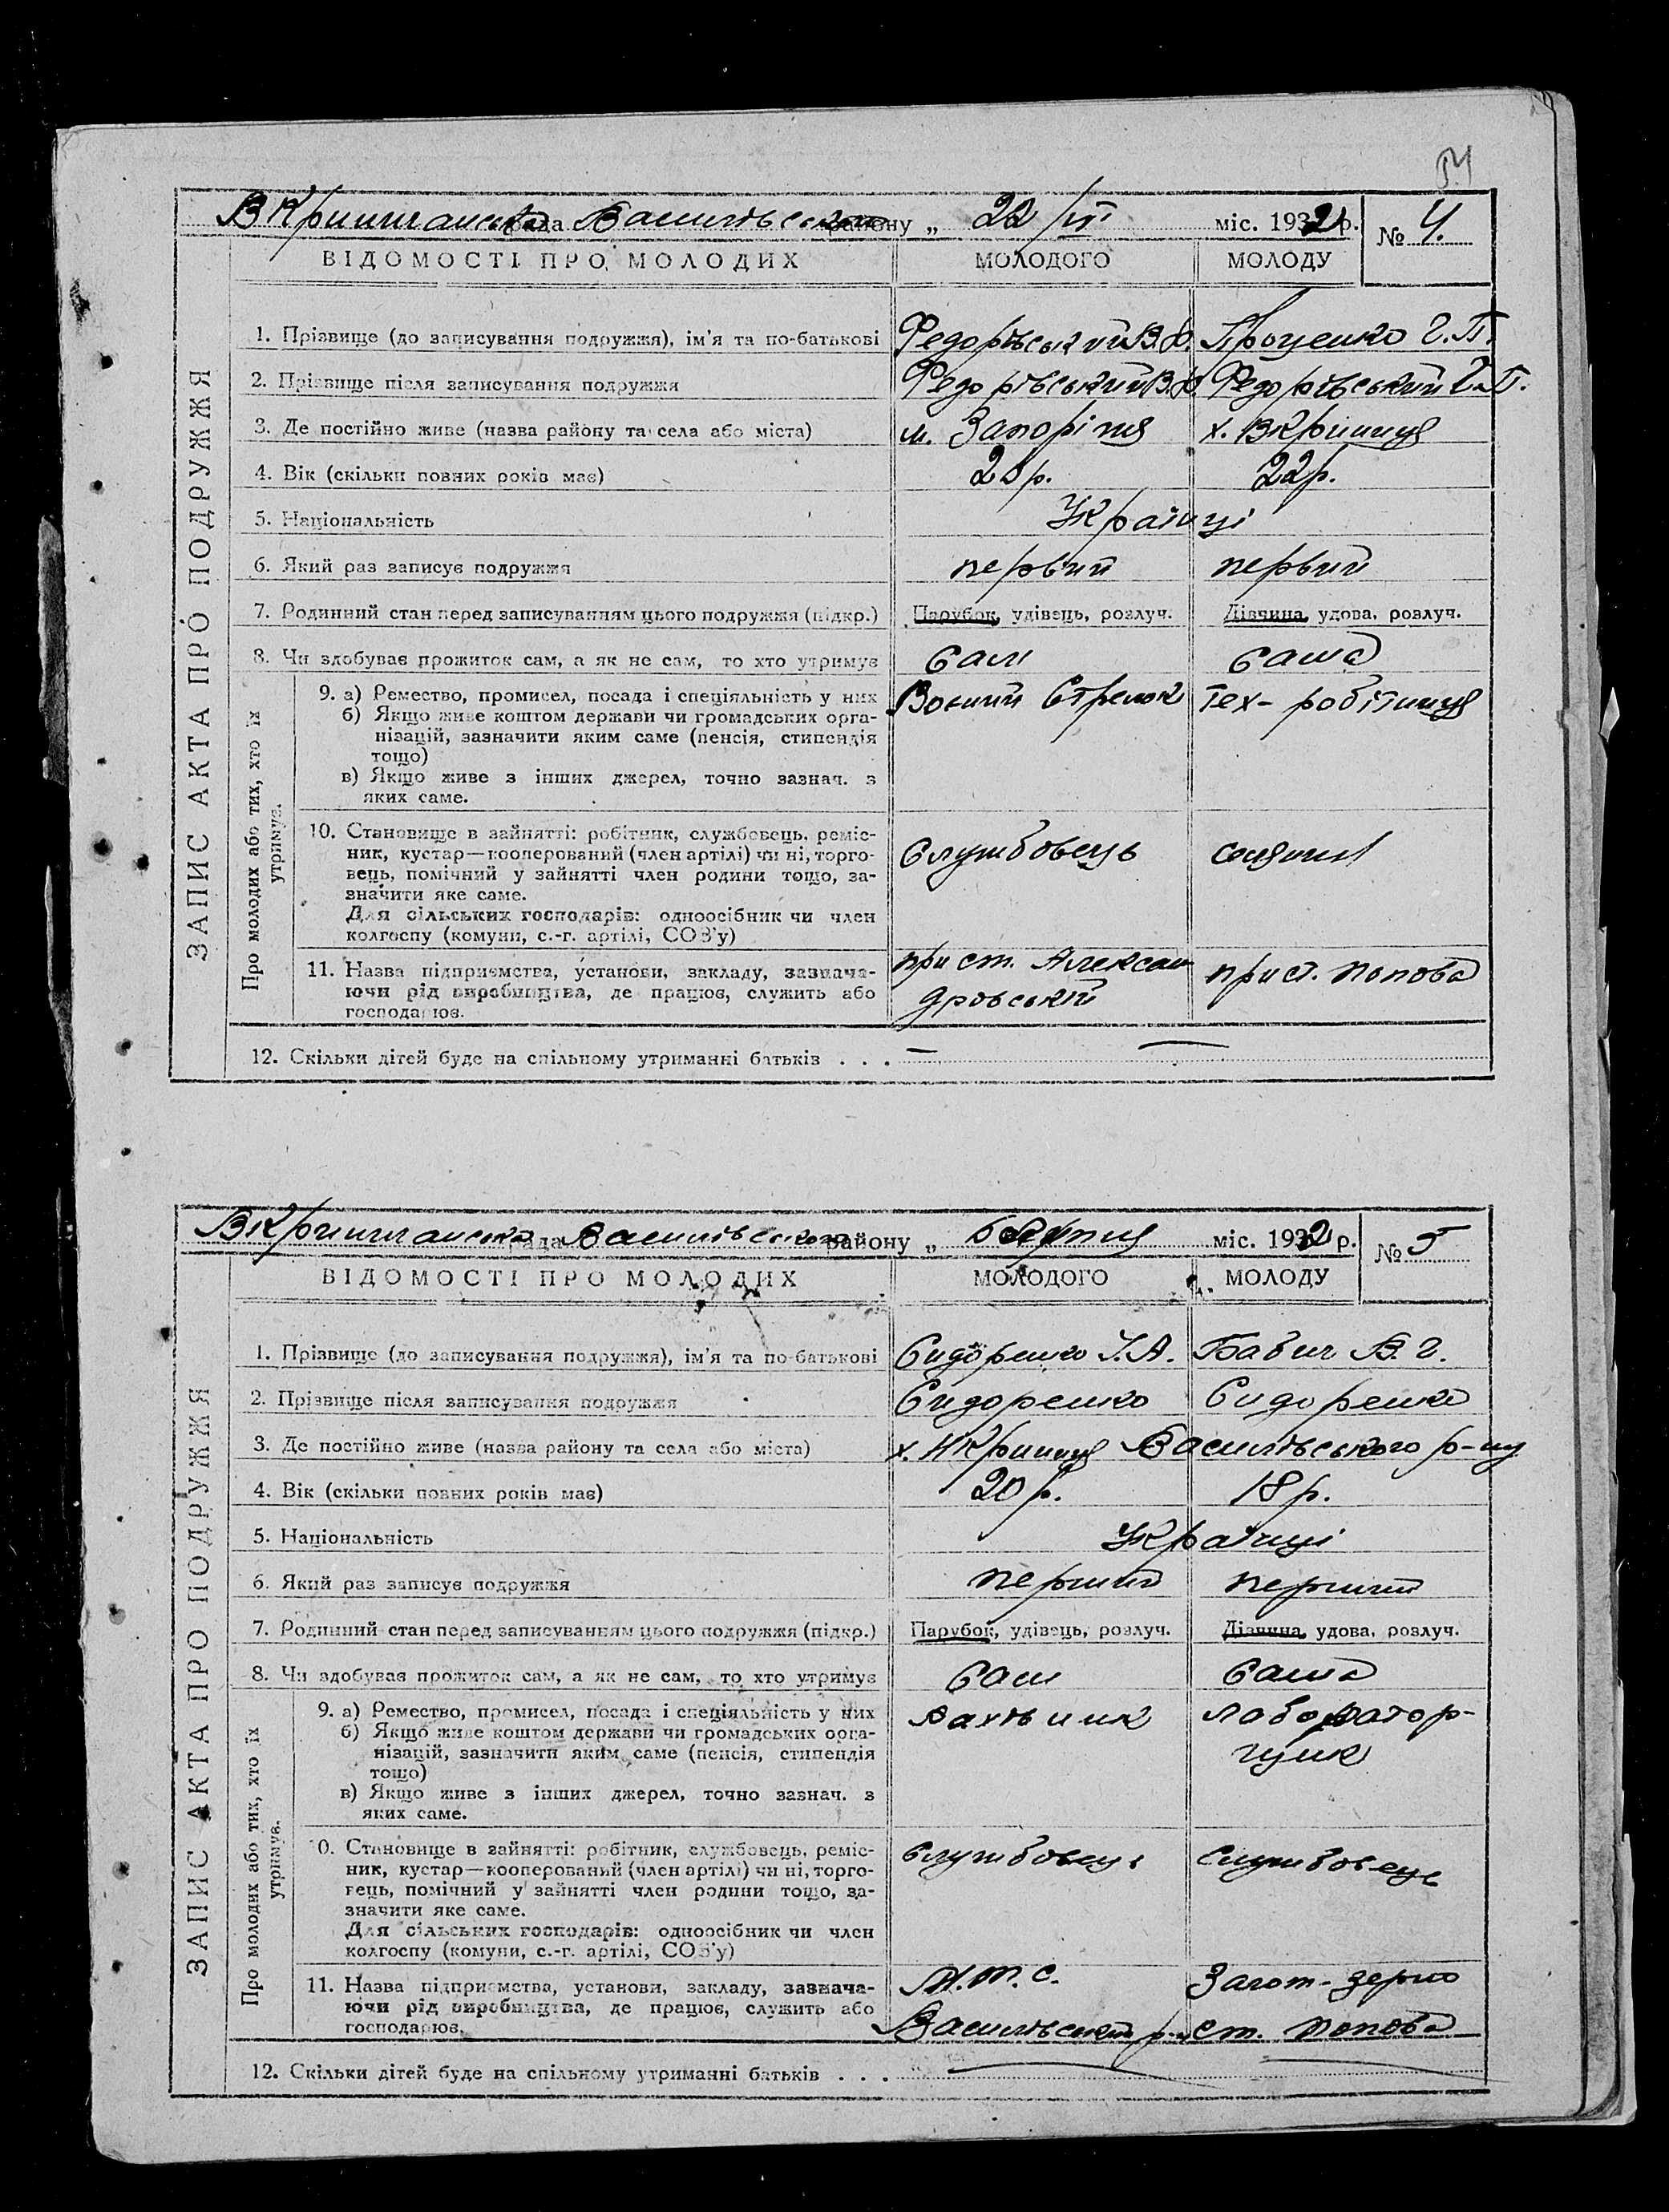 ВКриничанська рада Василівського району „ 22/III міс. 1932 р. № 4.
ЗАПИС АКТА ПРО ПОДРУЖЖЯ
ВІДОМОСТІ ПРО МОЛОДИХ МОЛОДОГО МОЛОДУ
1. Прізвище (до записування подружжя), ім'я та по-батькові Федорівський В.Ф. Проценко Г.П.
2. Прізвище після записування подружжя Федорівський В.Ф. Федорівський Г.П.
3. Де постійно живе (назва району та села або міста) м. Запоріжя х. ВКриниця
4. Вік (скільки повних років має) р. 22 р.
5. Національність Українці
6. Який раз записує подружжя первий первий
7. Родинний стан перед записуванням цього подружжя (підкр.) Парубок, удівець, розлуч. Дівчина, удова, розлуч.
8. Чи здобуває прожиток сам, а як не сам, то хто утримує Сам Сама
Про молодих або тих, хто їх утримує.
9. а) Ремество, промисел, посада і спеціяльність у них Воений Стрелок Тех-робітниця
б) Якщо живе коштом держави чи громадських орга-
нізацій, зазначити яким саме (пенсія, стипендія
тощо)
в) Якщо живе з інших джерел, точно зазнач. з
яких саме.
10. Становище в зайнятті: робітник, службовець, реміс-
ник, кустар—кооперований (член артілі) чи ні, торго- Службовець
вець, помічний у зайнятті член родини тощо, за-
значити яке саме.
Для сільських господарів: одноосібник чи член
колгоспу (комуни, с.-г. артілі, СОЗ'у)
11. Назва підприємства, установи, закладу, зазнача- при ст. Алексан при ст. Попова
ючи рід виробництва, де працює, служить або дровській
господарює.
12. Скільки дітей буде на спільному утриманні батьків . . . — —
ВКриничанська рада Василівського району „ міс. 1932 р. № 5
ЗАПИС АКТА ПРО ПОДРУЖЖЯ
ВІДОМОСТІ ПРО МОЛОДИХ МОЛОДОГО МОЛОДУ
1. Прізвище (до записування подружжя), ім'я та по-батькові Сидоренко І.А. Бабич В.Г.
2. Прізвище після записування подружжя Сидоренко Сидоренко
3. Де постійно живе (назва району та села або міста) х. НКриниця Василівського р-ну
4. Вік (скільки повних років має) 20 р. 18 р.
5. Національність Українці
6. Який раз записує подружжя перший перший
7. Родинний стан перед записуванням цього подружжя (підкр.) Парубок, удівець, розлуч. Дівчина, удова, розлуч.
8. Чи здобуває прожиток сам, а як не сам, то хто утримує Сам Сама
Про молодих або тих, хто їх утримує.
9. а) Ремество, промисел, посада і спеціяльність у них Вахтьиик лаборатор-
б) Якщо живе коштом держави чи громадських орга-
нізацій, зазначити яким саме (пенсія, стипендія
тощо)
в) Якщо живе з інших джерел, точно зазнач. з
яких саме.
0. Становище в зайнятті: робітник, службовець, реміс- Службовець Службовець
ник, кустар—кооперований (член артілі) чи ні, торго-
вець, помічний у зайнятті член родини тощо, за-
значити яке саме.
Для сільських господарів: одноосібник чи член
колгоспу (комуни, с.-г. артілі, СОЗ'у)
11. Назва підприємства, установи, закладу, зазнача- М.Т.С. Загот-зерно
ючи рід виробництва, де працює, служить або Василівський р-н ст. Попова
господарює.
12. Скільки дітей буде на спільному утриманні батьків . . .